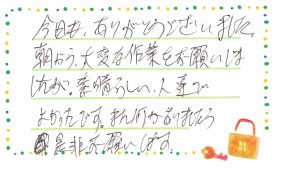 今日は、ありがとうございました。
朝から、大変な作業をお願いしま
したが、素晴らしい人達で
よかったです。また何かありましたら
是非お願いします。